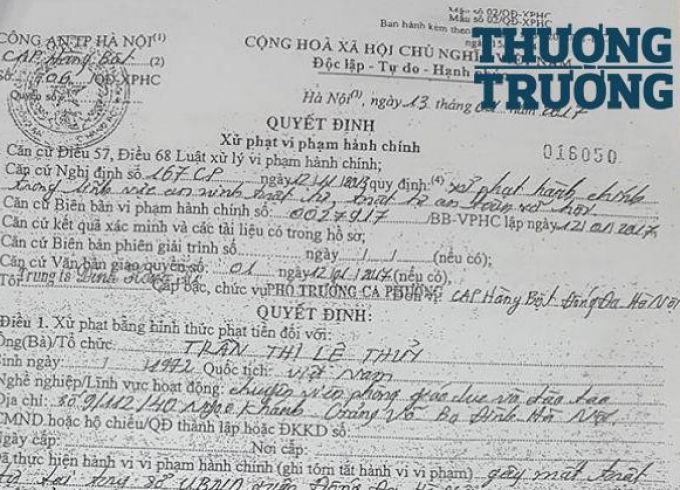 Mẫu số 02/QĐ-XPHC
Mẫu số 02/QĐ-XPHC
Ban hành kèm theo
CÔNG AN TP HÀ NỘI(1)
CỘNG HOÀ XÃ HỘI CHỦ NGHĨA VIỆT NAM
THƯƠNG
TRƯỜNG
CAP Hàng Bột (2)
Độc lập - Tự do - Hạnh phúc
Số: 606 /QĐ-XPHC
Quyển số:
Hà Nội(3), ngày 13 tháng 01 năm 2017
QUYẾT ĐỊNH
Xử phạt vi phạm hành chính
016050
Căn cứ Điều 57, Điều 68 Luật xử lý vi phạm hành chính;
Căn cứ Nghị định số 167 CP ngày 12/11/2013 quy định:(4) xử phạt hành chính
trong lĩnh vực an ninh trật tự, trật tự an toàn xã hội.
Căn cứ Biên bản vi phạm hành chính số: 0027917 /BB-VPHC lập ngày 12/01/2017
Căn cứ kết quả xác minh và các tài liệu có trong hồ sơ;
Căn cứ Biên bản phiên giải trình số ngày / / (nếu có);
Căn cứ Văn bản giao quyền số: 01 ngày 12/01/2017 (nếu có),
Tôi: Trung tá Đinh Cấp bậc, chức vụ PHÓ TRƯỞNG CA PHƯỜNG CAP Hàng Bột Đống Đa Hà Nội
QUYẾT ĐỊNH:
Điều 1. Xử phạt bằng hình thức phạt tiền đối với:
Ông(Bà)/Tổ chức: TRẦN THỊ LỆ THỦY
Sinh ngày / / 1972 Quốc tịch: Việt Nam
Nghề nghiệp/Lĩnh vực hoạt động: chuyên viên phòng giáo dục và đào tạo
Địa chỉ: Số 9/112/40 Ngọc Khánh Giảng Võ Ba Đình Hà Nội
CMND hoặc hộ chiếu/QĐ thành lập hoặc ĐKKD số:
Ngày cấp: Nơi cấp:
Đã thực hiện hành vi vi phạm hành chính (ghi tóm tắt hành vi vi phạm) gây mất trật
tự tại trụ sở UBND quận Đống Đa